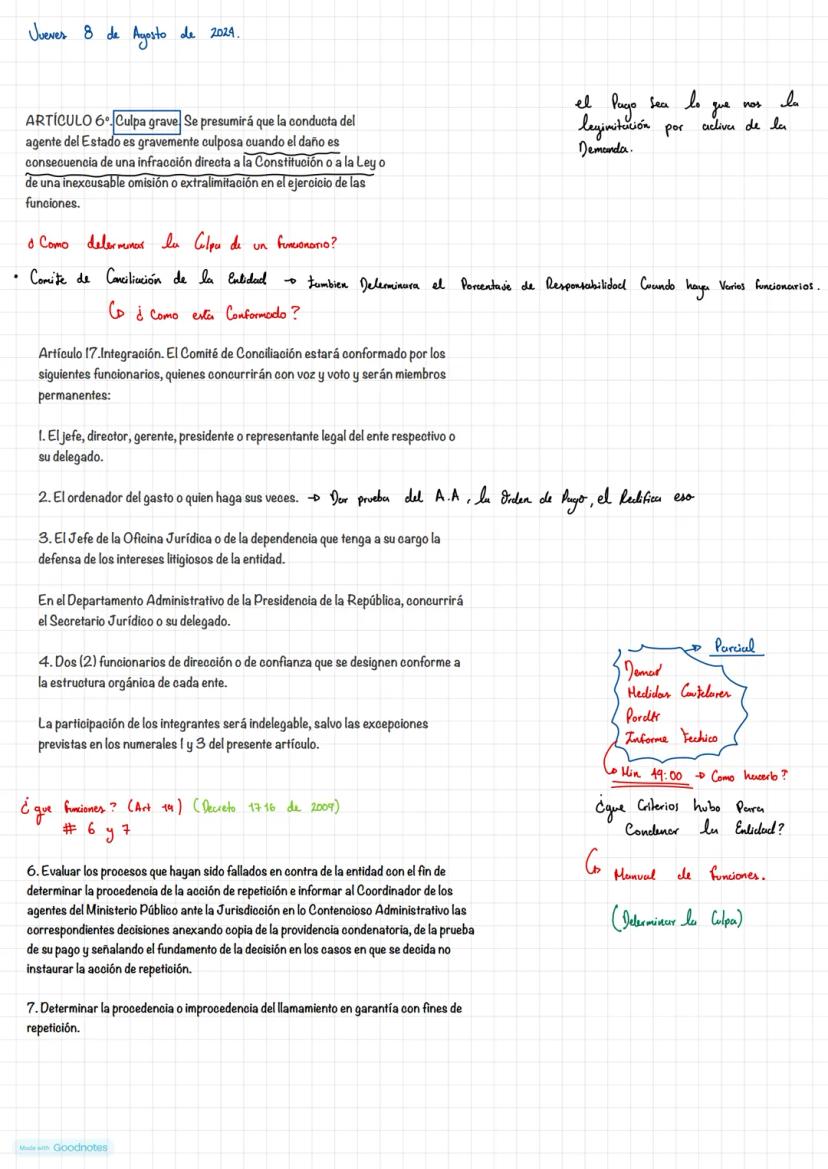 Jueves 8 de Agosto de 2024.
el Pago sea lo que nos la
legimitación por activa de la
Demanda.
ARTÍCULO 6º. Culpa grave. Se presumirá que la conducta del
agente del Estado es gravemente culposa cuando el daño es
consecuencia de una infracción directa a la Constitución o a la Ley o
de una inexcusable omisión o extralimitación en el ejercicio de las
funciones.
¿Como determinar la Culpa de un funcionario?
• Comite de Conciliación de la Entidad → tambien Determinara el Porcentaje de Responsabilidad Cuando haya Varios funcionarios.
↳ ¿Como esta Conformado?
Artículo 17.Integración. El Comité de Conciliación estará conformado por los
siguientes funcionarios, quienes concurrirán con voz y voto y serán miembros
permanentes:
1. El jefe, director, gerente, presidente o representante legal del ente respectivo o
su delegado.
2. El ordenador del gasto o quien haga sus veces. → Dar prueba del A.A, la Orden de Pago, el Redifica eso
3. El Jefe de la Oficina Jurídica o de la dependencia que tenga a su cargo la
defensa de los intereses litigiosos de la entidad.
En el Departamento Administrativo de la Presidencia de la República, concurrirá
el Secretario Jurídico o su delegado.
4. Dos (2) funcionarios de dirección o de confianza que se designen conforme a
la estructura orgánica de cada ente.
La participación de los integrantes será indelegable, salvo las excepciones
previstas en los numerales 1 y 3 del presente artículo.
→ Parcial
Medidas Cautelares
Informe
↳ Min 49:00 → Como hacerlo?
¿que Criterios hubo Para
Condenar la Entidad?
↳ Manual de funciones.
(Determinar la Culpa)
¿que funciones? (Art 19) (Decreto 1716 de 2009)
# 6 y 7
6. Evaluar los procesos que hayan sido fallados en contra de la entidad con el fin de
determinar la procedencia de la acción de repetición e informar al Coordinador de los
agentes del Ministerio Público ante la Jurisdicción en lo Contencioso Administrativo las
correspondientes decisiones anexando copia de la providencia condenatoria, de la prueba
de su pago y señalando el fundamento de la decisión en los casos en que se decida no
instaurar la acción de repetición.
7. Determinar la procedencia o improcedencia del llamamiento en garantía con fines de
repetición.
Made with Goodnotes